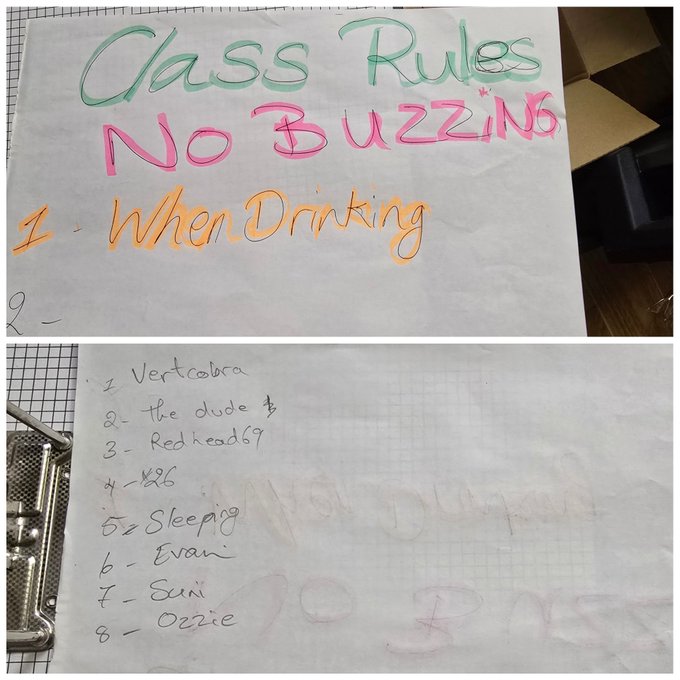 Class Rules
No BUZZiNG
1 - When Drinking
2 -
1 Vertcobra
2 - the dude
3 - Redhead69
4 - 26
5 - Sleeping
6 - Evan
7 - Suni
8 - Ozzie